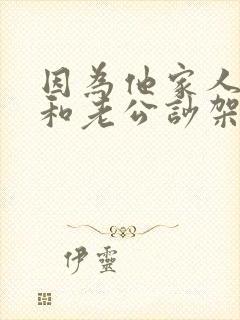 因為他家人
和老公訟架
伊靈